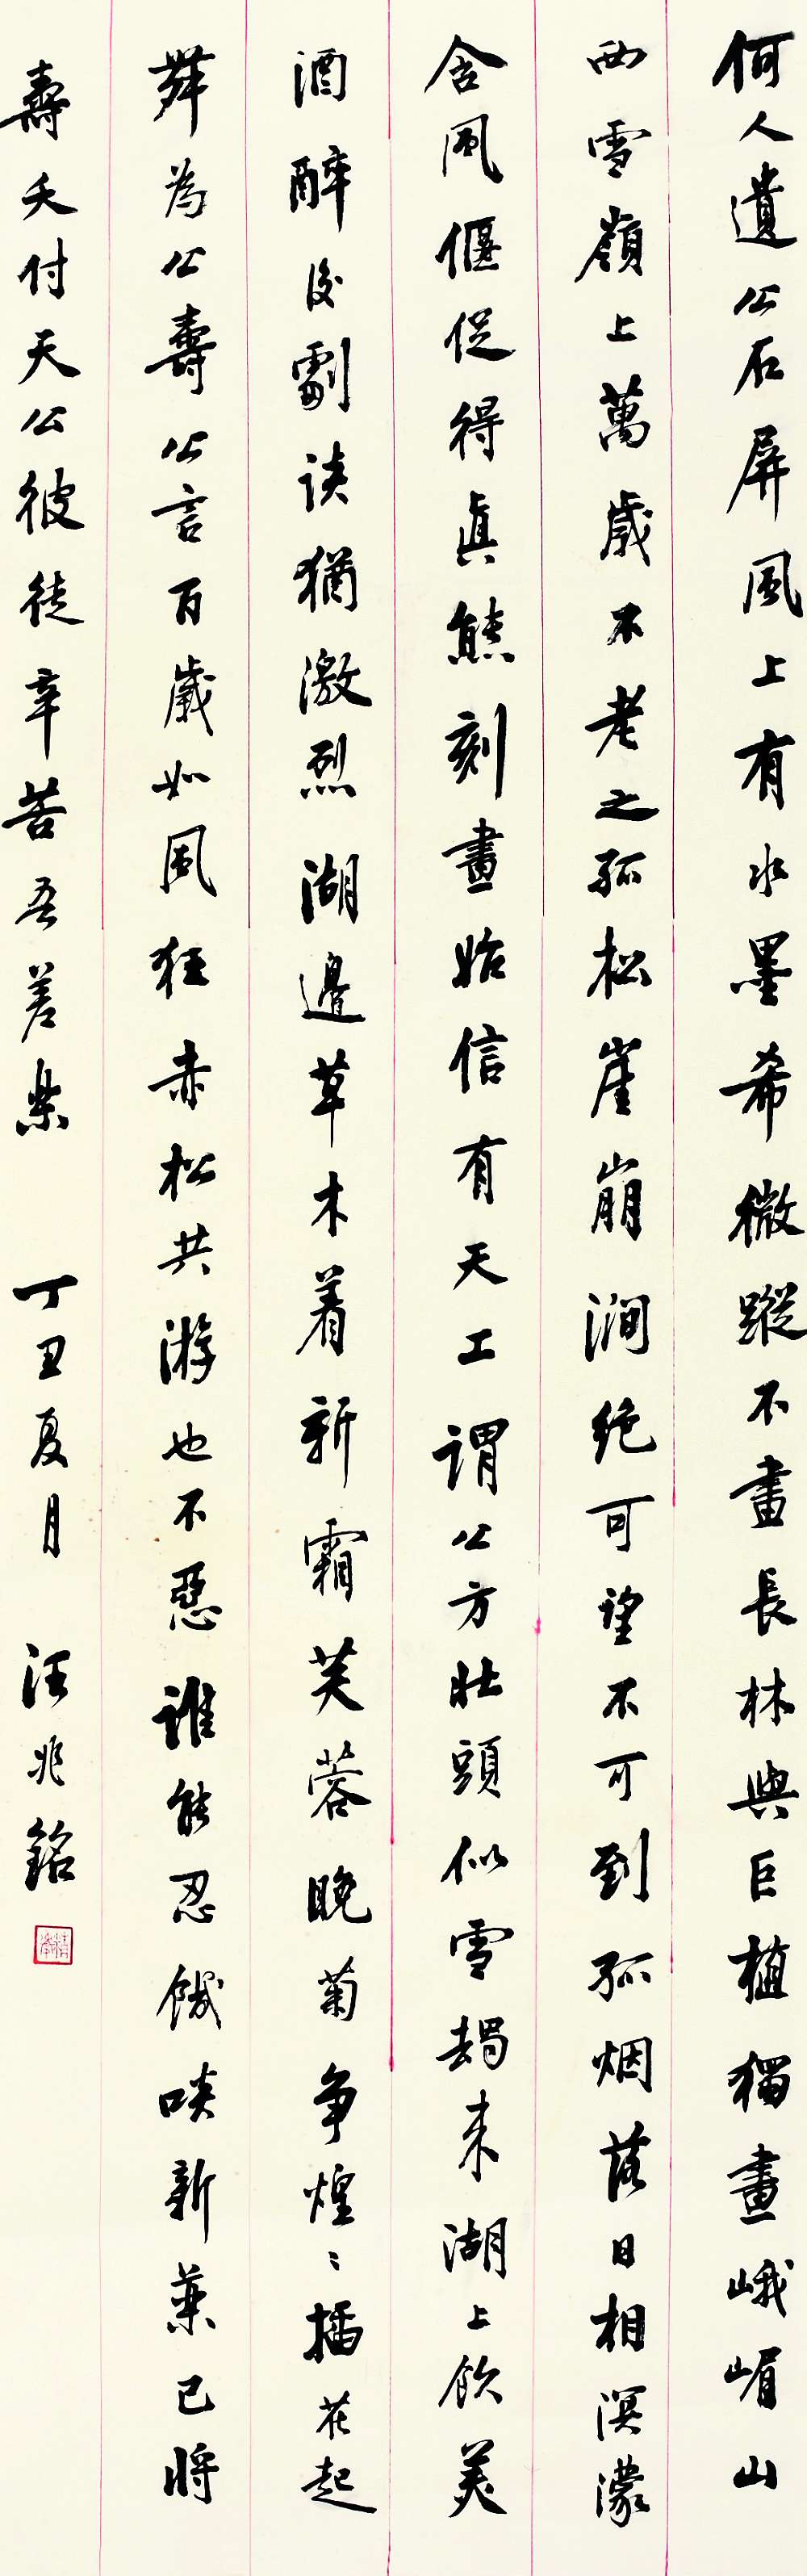 何人遺公石屏風上有水墨希微蹤不畫長林與巨植獨畫峨嵋山
西雪嶺上萬歲不老之孤松崖崩澗絕可望不可到孤烟落日相溟濛
含風偃蹇得真態刻畫始信有天工謂公方壯頭似雪朅來湖上飲美
酒醉後劇談猶激烈湖邊草木着新霜芙蓉晚菊爭煌〻插花起
舞為公壽公言百歲如風狂赤松共游也不惡誰能忍飢啖新藥已將
壽夭付天公彼徒辛苦吾差樂　丁丑夏月　汪兆銘